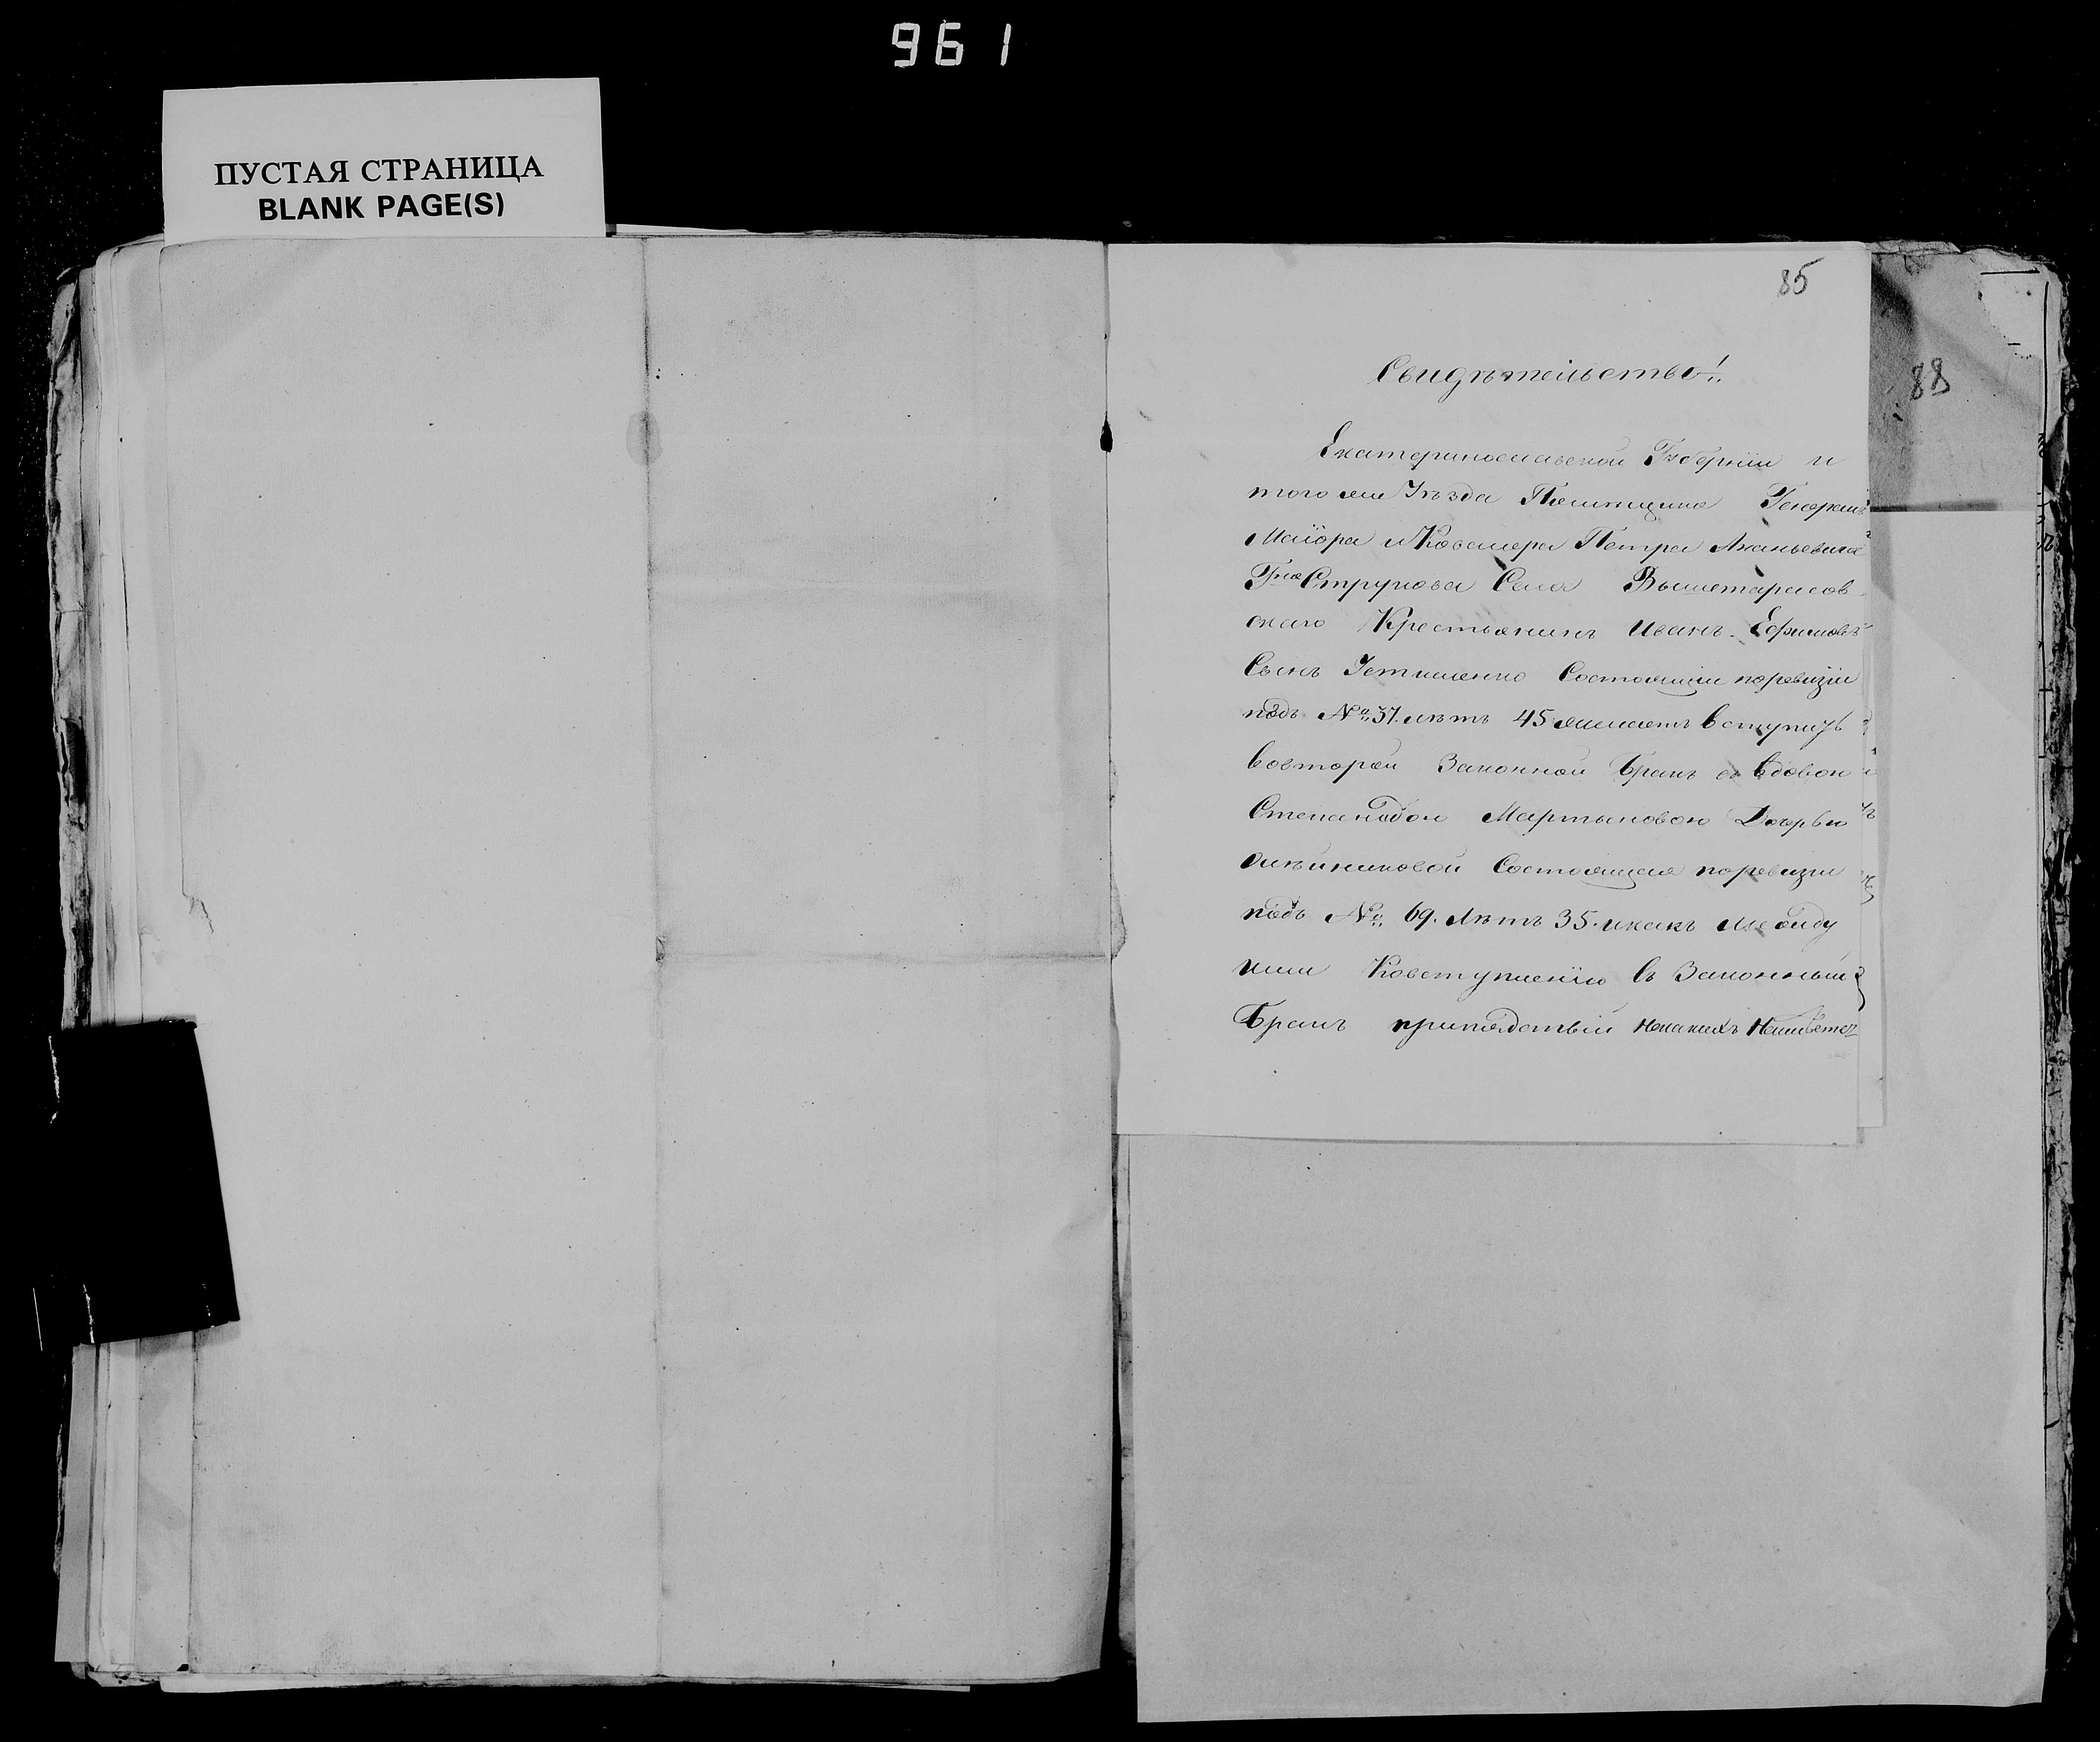 961
ПУСТАЯ СТРАНИЦА
BLANK PAGE(S)
85
88
Свидѣтельство
Екатеринославской Губерніи и
того же Уѣзда Помѣщика Генералъ
Маіора и Кавалера Петра Ананьевича
Гна Струкова Села Вышетарасов
скаго Крестьянинъ Иванъ Ефимовъ
Сынъ состоящій поревизіи
подъ № 37. лѣтъ 45 желаетъ вступить
вовторой Законной бракъ съ вдовою
Степанидою Мартыновою Дочерью
состоящая поревизіи
подъ № 69. Лѣтъ 35. икакъ между
ими Ковступленію въ Законный
бракъ препядствій никакихъ